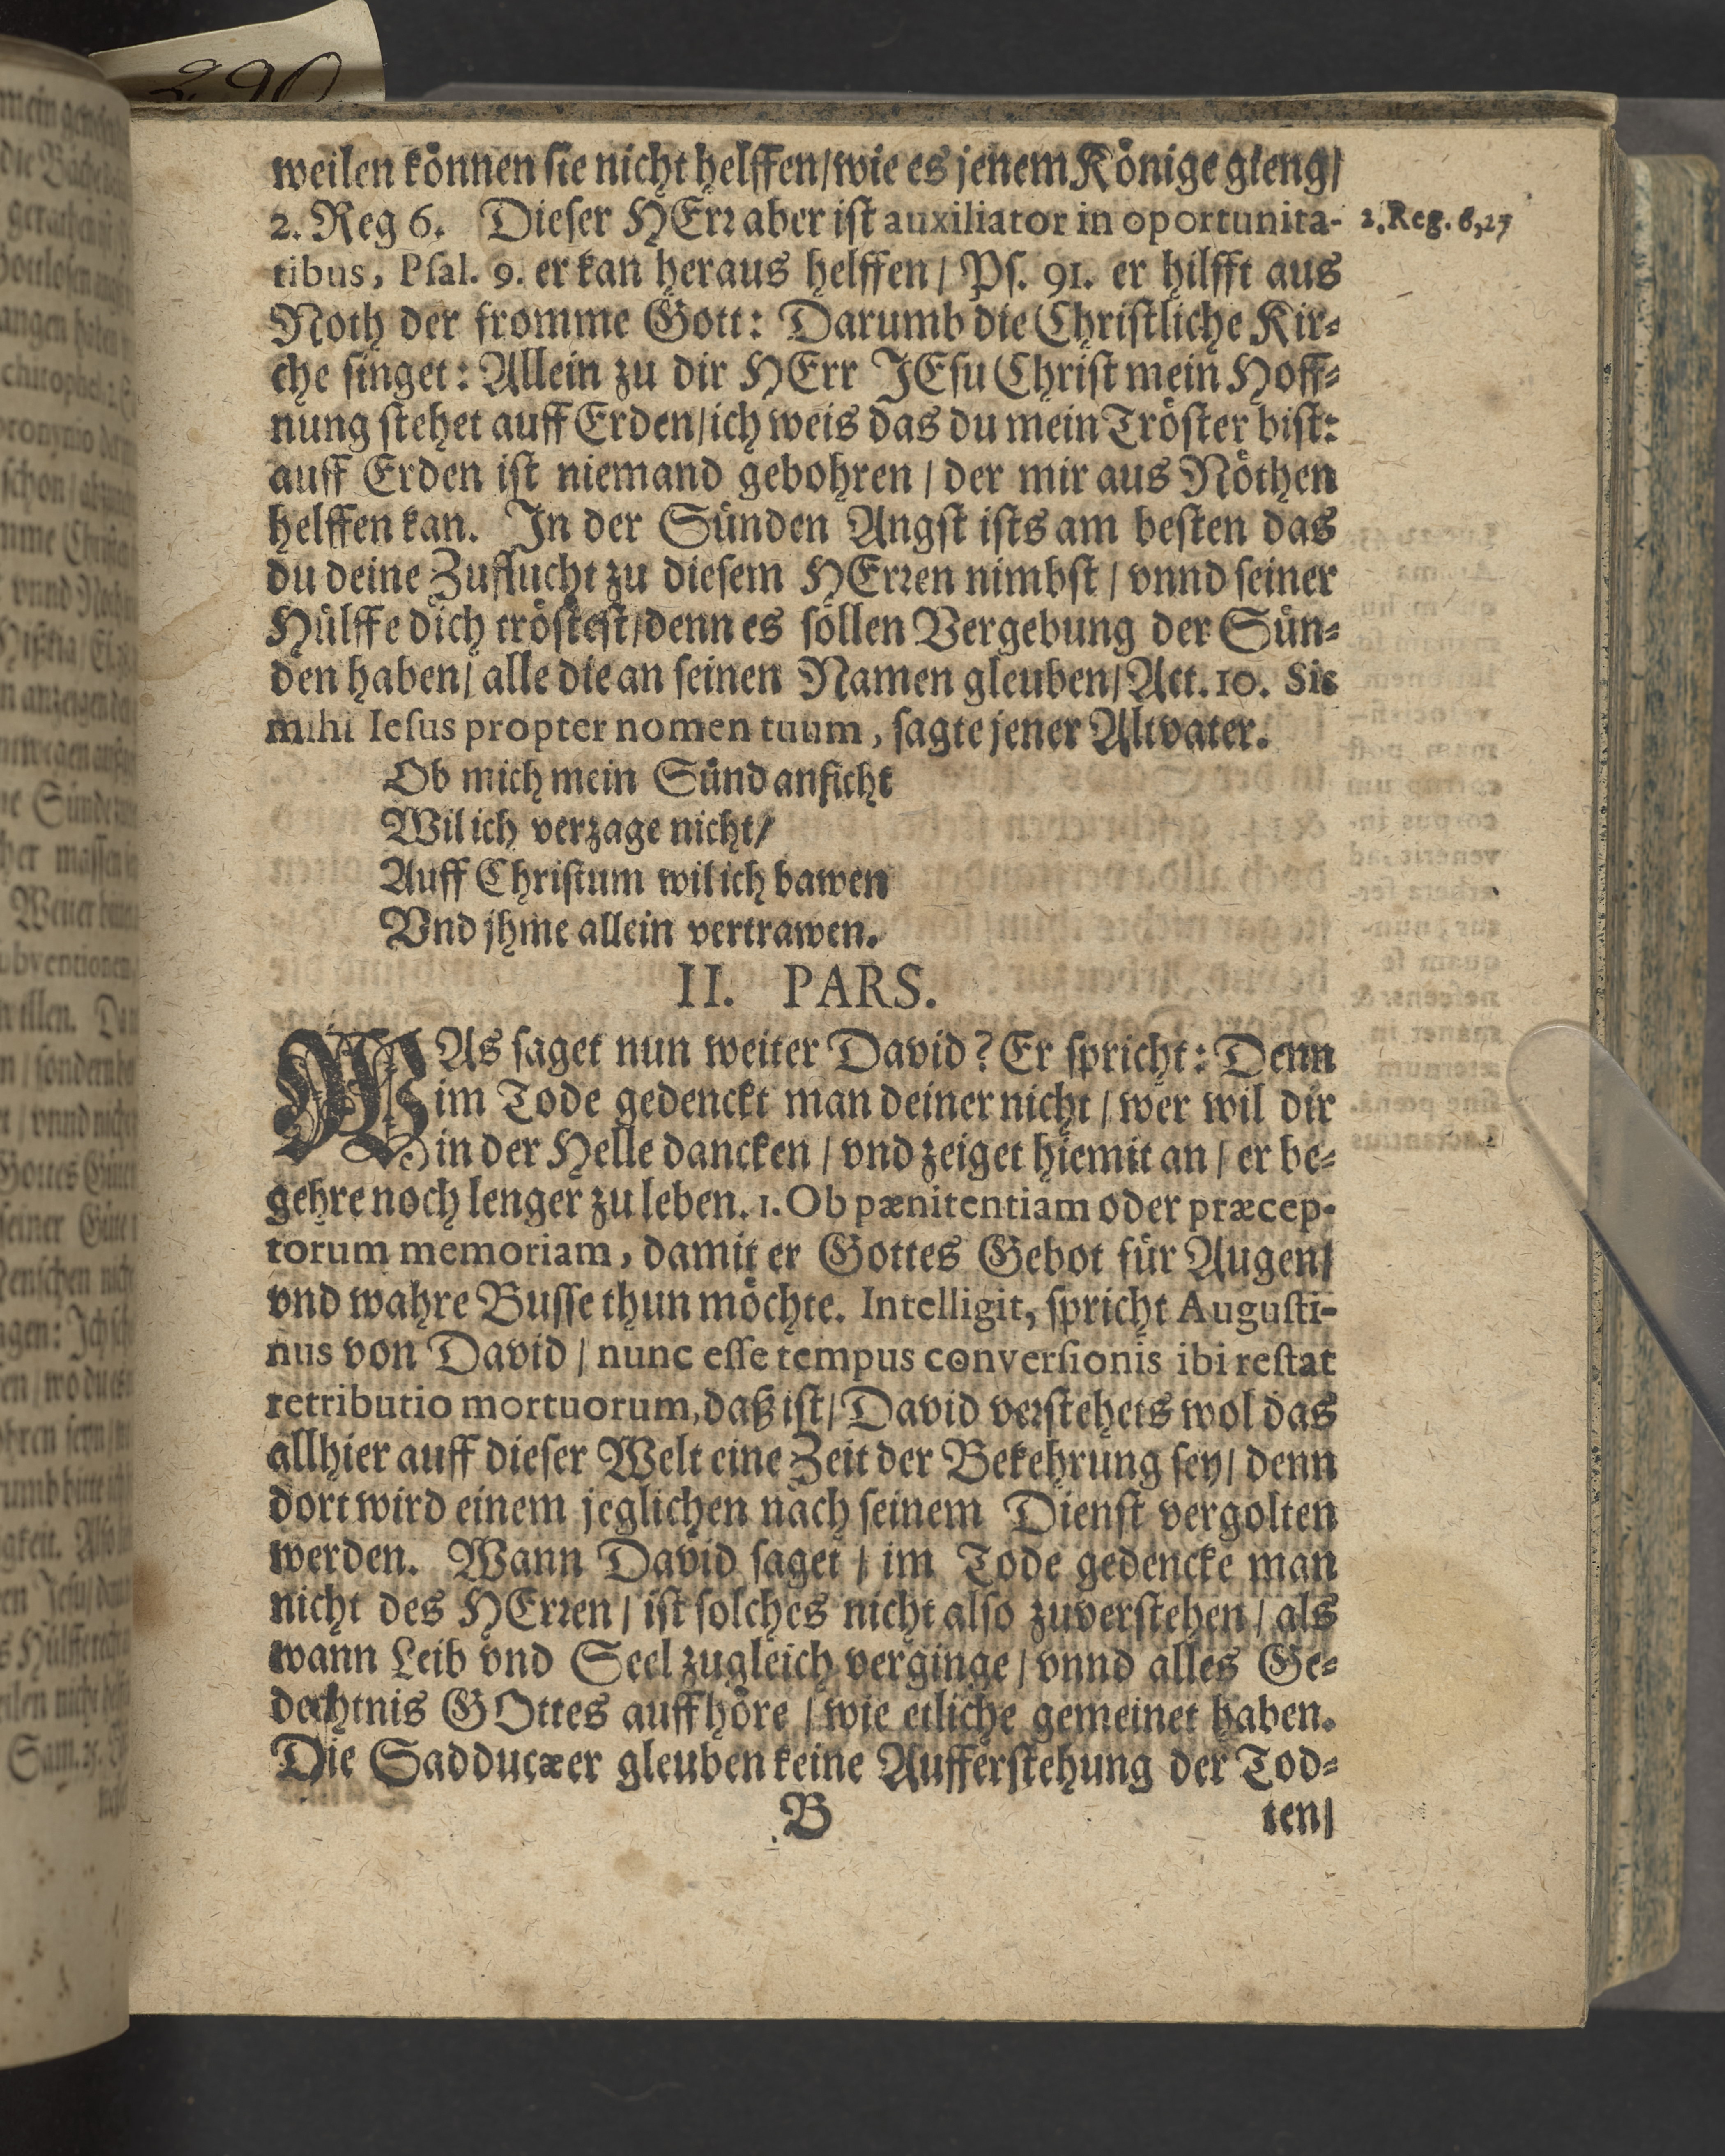 290
weilen können sie nicht helffen/ wie es jenem Könige gieng/
2. Reg 6. Dieser HErr aber ist auxiliator in oportunita-
2. Reg. 6, 27
tibus, Psal. 9. er kan heraus helffen/ Ps. 91. er hilfft aus
Noth der fromme Gott: Darumb die Christliche Kir-
che singet: Allein zu dir HErr JEsu Christ mein Hoff-
nung stehet auff Erden/ ich weis das du mein Tröster bist:
auff Erden ist niemand gebohren / der mir aus Nöthen
helffen kan. In der Sünden Angst ists am besten das
du deine Zuflucht zu diesem HErren nimbst / vnnd seiner
Hülffe dich tröstest/ denn es söllen Vergebung der Sün-
den haben/ alle die an seinen Namen gleuben/ Act. 10. Sis
mihi Iesus propter nomen tuum, sagte jener Altvater.
Ob mich mein Sünd anficht
Wil ich verzage nicht/
Auff Christum wil ich bawen
Vnd jhme allein vertrawen.
II. PARS.
WAs saget nun weiter David? Er spricht: Denn
im Tode gedenckt man deiner nicht / wer wil dir
in der Helle dancken / vnd zeiget hiemit an / er be-
gehre noch lenger zu leben. 1. Ob pænitentiam oder præcep-
torum memoriam, damit er Gottes Gebot für Augen/
vnd wahre Busse thun möchte. Intelligit, spricht Augusti-
nus von David / nunc esse tempus conversionis ibi restat
retributio mortuorum, daß ist/ David verstehets wol das
allhier auff dieser Welt eine Zeit der Bekehrung sey/ denn
dort wird einem jeglichen nach seinem Dienst vergolten
werden. Wann David saget / im Tode gedencke man
nicht des HErren / ist solches nicht also zuverstehen / als
wann Leib vnd Seel zugleich verginge / vnnd alles Ge-
dechtnis GOttes auffhöre / wie etliche gemeinet haben.
Die Sadducæer gleuben keine Aufferstehung der Tod-
B ten/